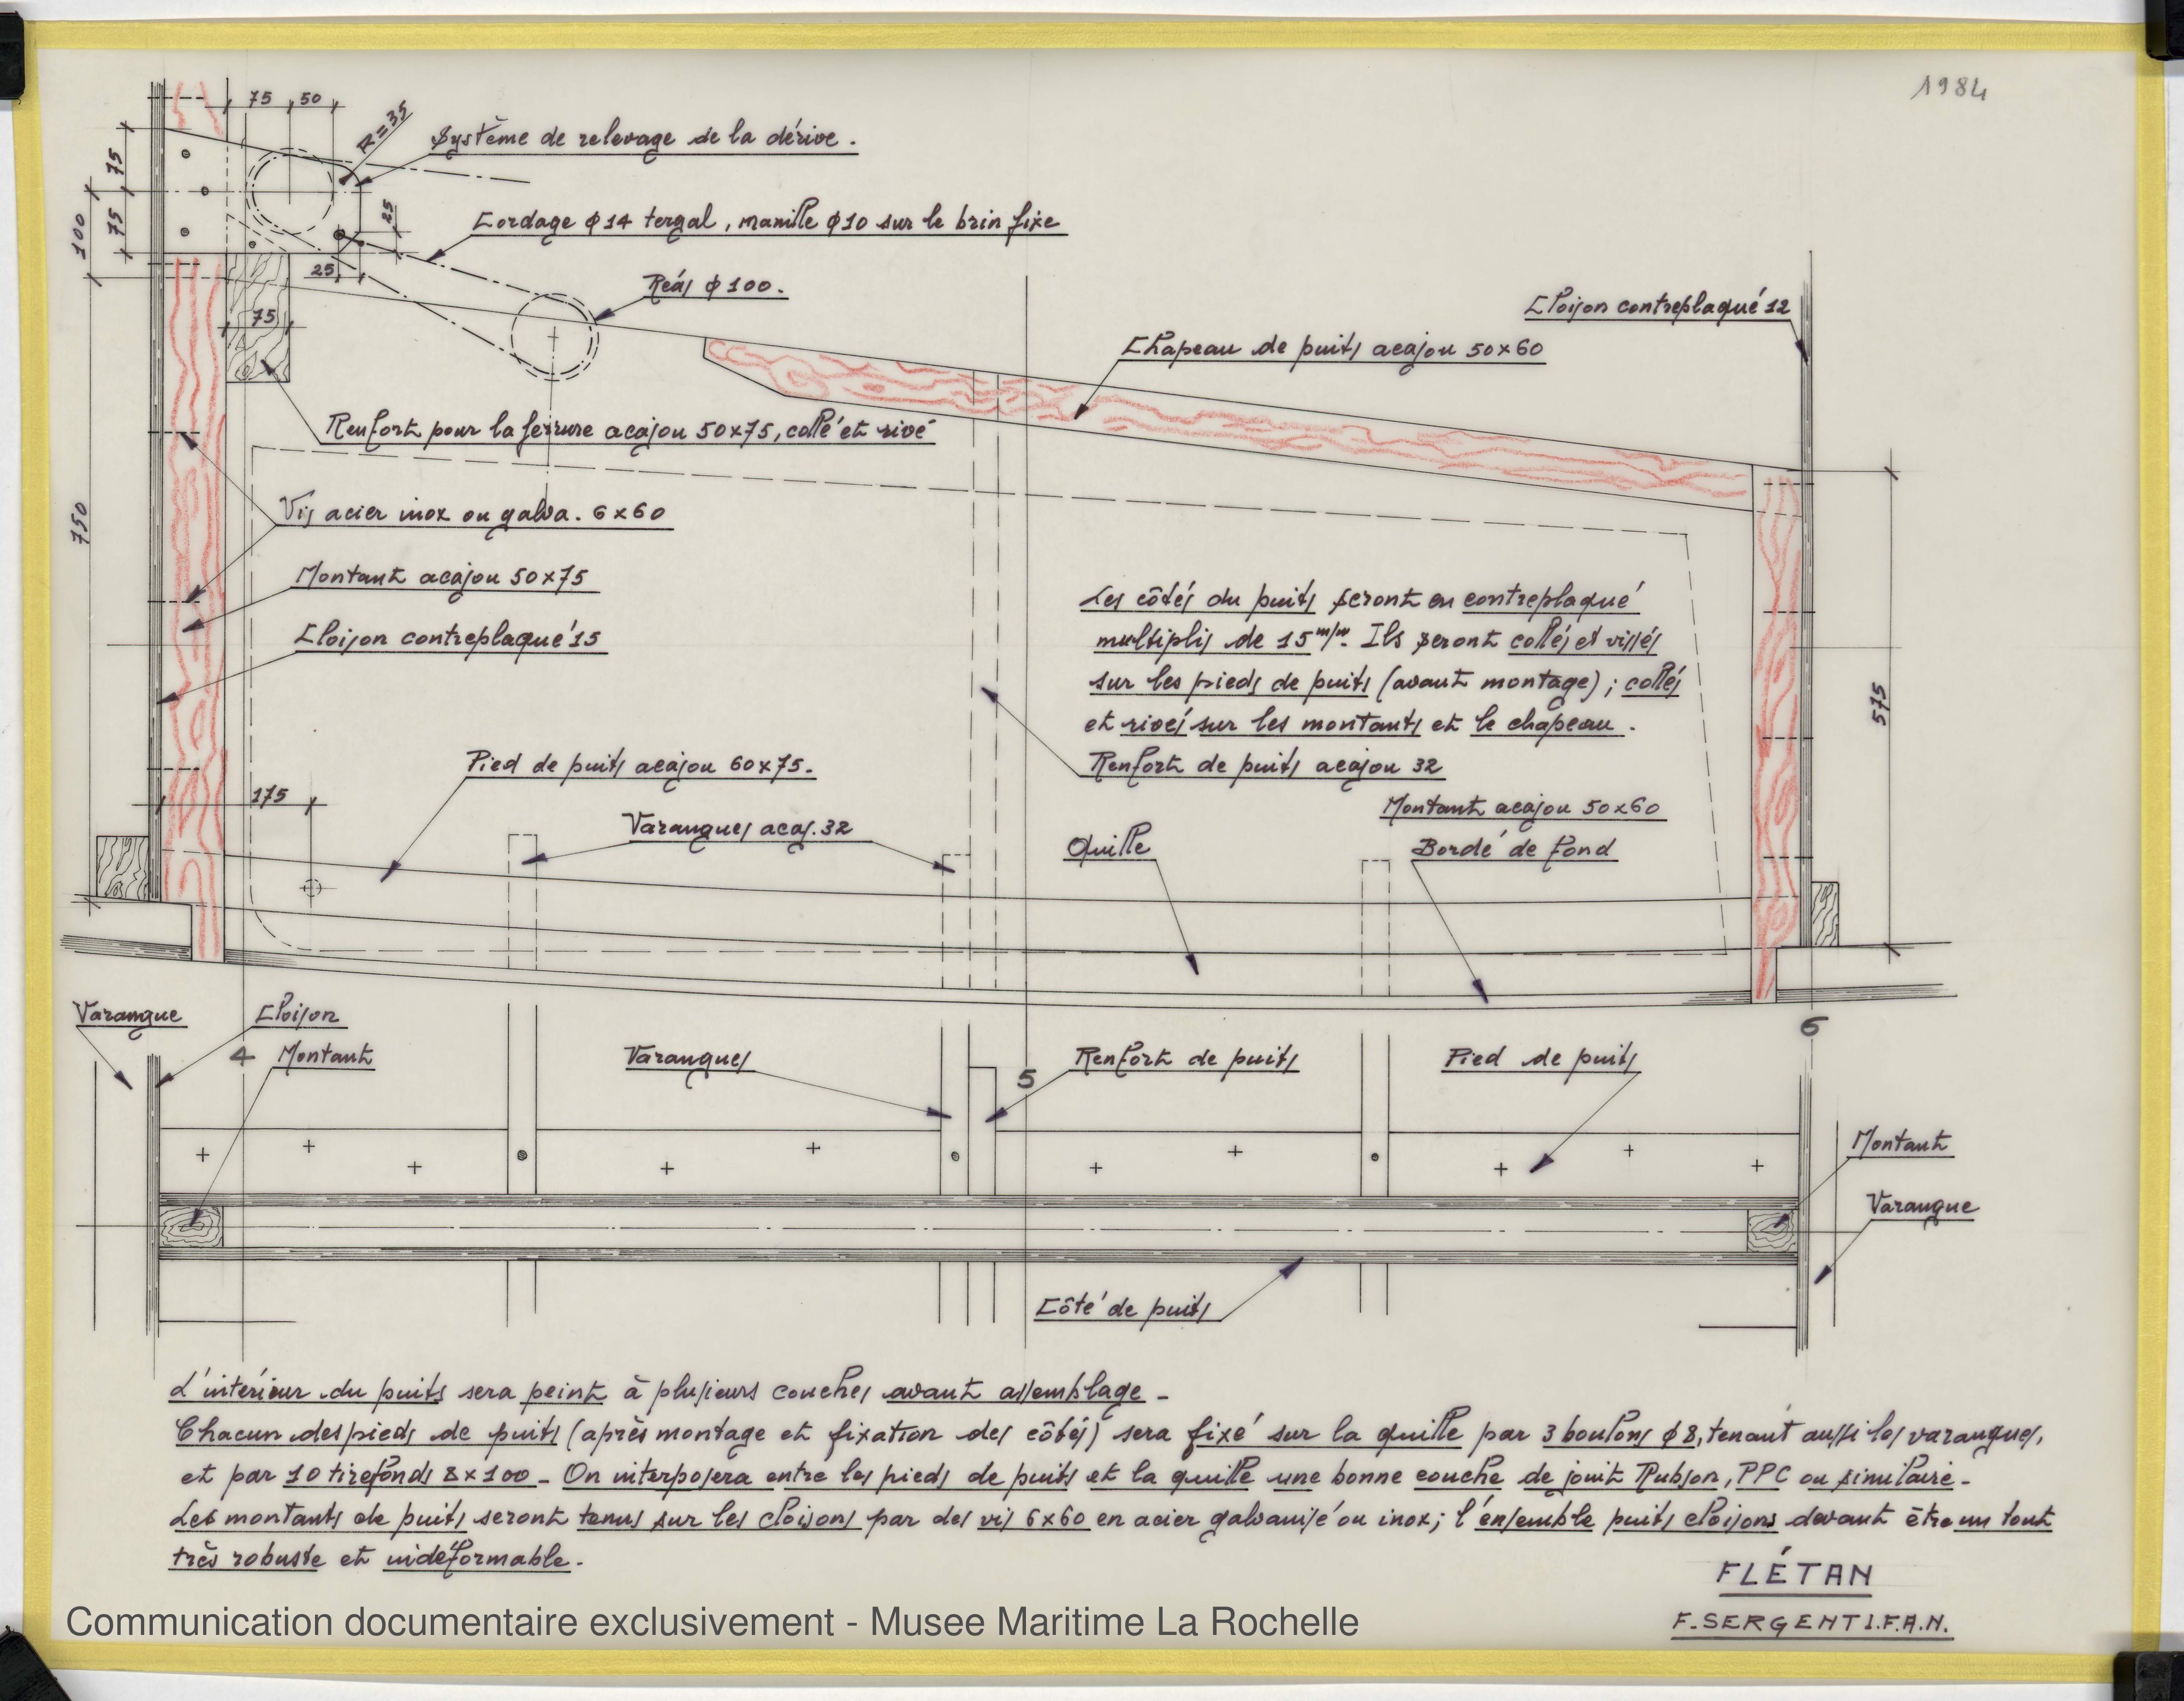 1984
75 50
R=35
Système de relevage de la dérive.
75
75
100
25
Cordage ϕ14 tergal, manille ϕ10 sur le brin fixe
25
Réas ϕ100.
Cloison contreplaqué 12
75
Chapeau de puits acajou 50x60
Renfort pour la ferrure acajou 50x75, collé et rivé
750
Vis acier inox ou galva. 6x60
Montant acajou 50x75
Cloison contreplaqué 15
Les côtés du puits seront en contreplaqué
multiplis de 15 m/m. Ils seront collés et vissés
sur les pieds de puits (avant montage); collés
et rivés sur les montants et le chapeau.
575
Pied de puits acajou 60x75.
Renfort de puits acajou 32
175
Montant acajou 50x60
Varangues acaj. 32
Quille
Bordé de fond
Varangue
Cloison
6
4
Montant
Varangues
5
Renfort de puits
Pied de puits
Montant
Varangue
Côté de puits
L'intérieur du puits sera peint à plusieurs couches avant assemblage -
Chacun des pieds de puits (après montage et fixation des côtés) sera fixé sur la quille par 3 boulons ϕ8, tenant aussi les varangues,
et par 10 tirefonds 8x100 - On interposera entre les pieds de puits et la quille une bonne couche de joint Rubson, PPC ou similaire -
Les montants de puits seront tenus sur les cloisons par des vis 6x60 en acier galvanisé ou inox; l'ensemble puits cloisons devant être un tout
très robuste et indéformable.
FLÉTAN
F. SERGENT I.F.A.N.
Communication documentaire exclusivement - Musee Maritime La Rochelle